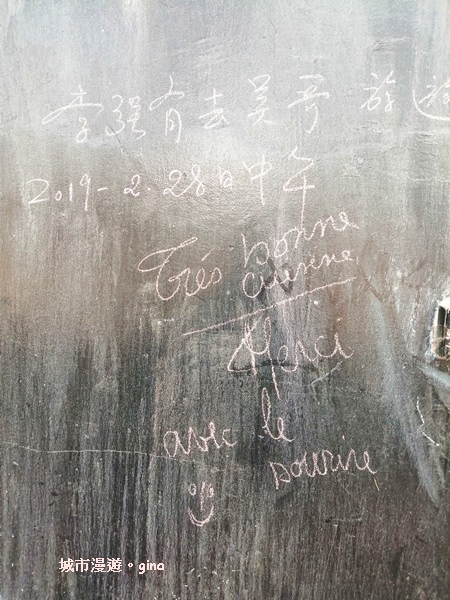 李強有去吴哥 旅遊
2019-2.28日中午
Très bonne
cuisine
Merci
avec le
sourire
城市漫遊。gina